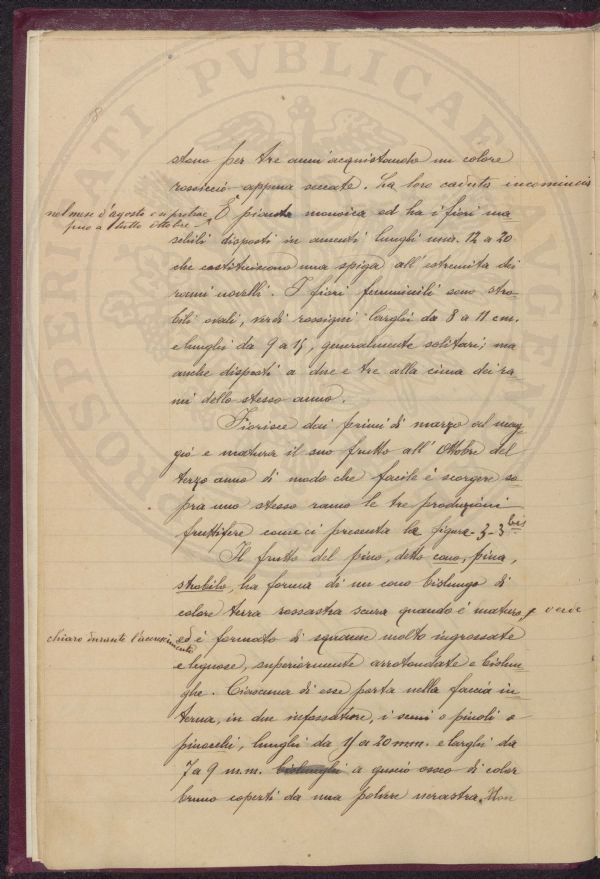 8
stono per tre anni acquistando un colore
rossiccio appena seccate. La loro caduta incomincia
nel mese d'agosto e si protrae
fino a tutto ottobre.
È pianta monoica ed ha i fiori ma-
schili disposti in amenti lunghi mm. 12 a 20
che costituiscono una spiga all'estremita dei
rami novelli. I fiori femminili sono stro-
bili ovali, verdi rossigni larghi da 8 a 11 cm.
e lunghi da 9 a 15, generalmente solitari; ma
anche disposti a due e tre alla cima dei ra-
mi dello stesso anno.
Fiorisce dai primi di marzo al mag-
gio e matura il suo frutto all'Ottobre del
terzo anno di modo che facile è scorgere so-
pra uno stesso ramo le tre produzioni
fruttifere come ci presenta la figura-3-3 bis
Il frutto del pino, detto cono, pina,
strobilo, ha forma di un cono bislungo di
colore terra rossastra scura quando è maturo, e verde
chiaro durante l'accrescimento
ed è formato di squame molto ingrossate
e legnose, superiormente arrotondate e bislun-
ghe. Ciascuna di esse porta nella faccia in-
terna, in due infossature, i semi o pinoli o
pinocchi, lunghi da 15 a 20 mm. e larghi da
7 a 9 m.m. bislunghi a guscio osseo di color
bruno coperti da una polvere nerastra. Non
PROSPERITATI PVBLICAE AVGENDAE